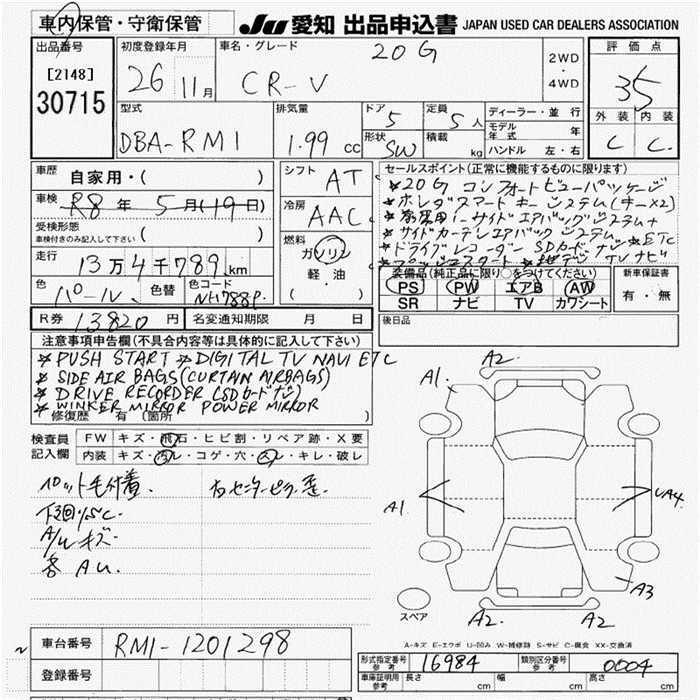 車内保管・守衛保管 JU 愛知 出品申込書 JAPAN USED CAR DEALERS ASSOCIATION
出品番号 初度登録年月 車名・グレード 20G 2WD・4WD 評価点
[2148] 26 11月 CR-V 35
30715
型式 排気量 ドア 5 定員 5人 ディーラー・並行 外装 内装
DBA-RM1 1.99 cc 形状 SW 積載 kg モデル年式 年 C C
ハンドル 左・右
車歴 自家用・( ) シフト AT セールスポイント(正常に機能するものに限ります)
車検 R8年 5月(19日) 冷房 AAC *20G コンフォートビューパッケージ
*ホンダスマートキーシステム(キー×2)
受検形態 ( )
車検付きのみ記入して下さい
*サイドカーテンエアバッグシステム *ETC
走行 13万4千789km 燃料 ガソリン *ドライブレコーダー SDカードナビ TVナビ
軽油
( )
色 パール 色替 色コード NH788P
装備品(純正品に限り○をつけてください) 新車保証書
PS PW エアB AW 有・無
SR ナビ TV カワシート
R券 13820円 名変通知期限 月 日 後日品
注意事項申告欄(不具合内容等は具体的に記入して下さい)
*PUSH START *DIGITAL TV NAVI ETC
*SIDE AIR BAGS(CURTAIN AIRBAGS)
*DRIVE RECORDER (SDカードナビ)
*WINKER MIRROR POWER MIRROR
修復歴 有 (箇所 )
検査員記入欄 FW キズ・飛石・ヒビ割・リペア跡・X要
内装 キズ・汚レ・コゲ・穴・スレ・キレ・破レ
ペット毛付着.
下回りSC.
A/Wキズ.
各AU.
A1 A2
A1 UA4
A3
スペア A2 A2
A-キズ E-エクボ U-凹み W-補修跡 S-サビ C-腐食 XX-交換済
車台番号 RM1-1201298
登録番号
形式指定番号 参考 16984 類別区分番号 参考 0004
車庫証明用 参考 長さ cm 幅 cm 高さ cm